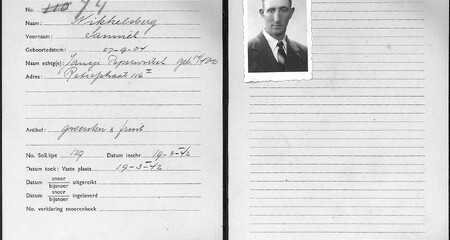 No. 110 74
Naam: Nikkelsberg
Voornaam: Sammel
Geboortedatum: 07-9-04
Naam echtg(e):
Adres: 116 I
Artikel: groenten & fruit
No. Soll.lijst 129 Datum inschr. 19-3-42
Datum toek: Vaste plaats 19-3-42
Datum snoer bijsnoer uitgereikt
Datum snoer bijsnoer ingeleverd
No. verklaring snoerenboek